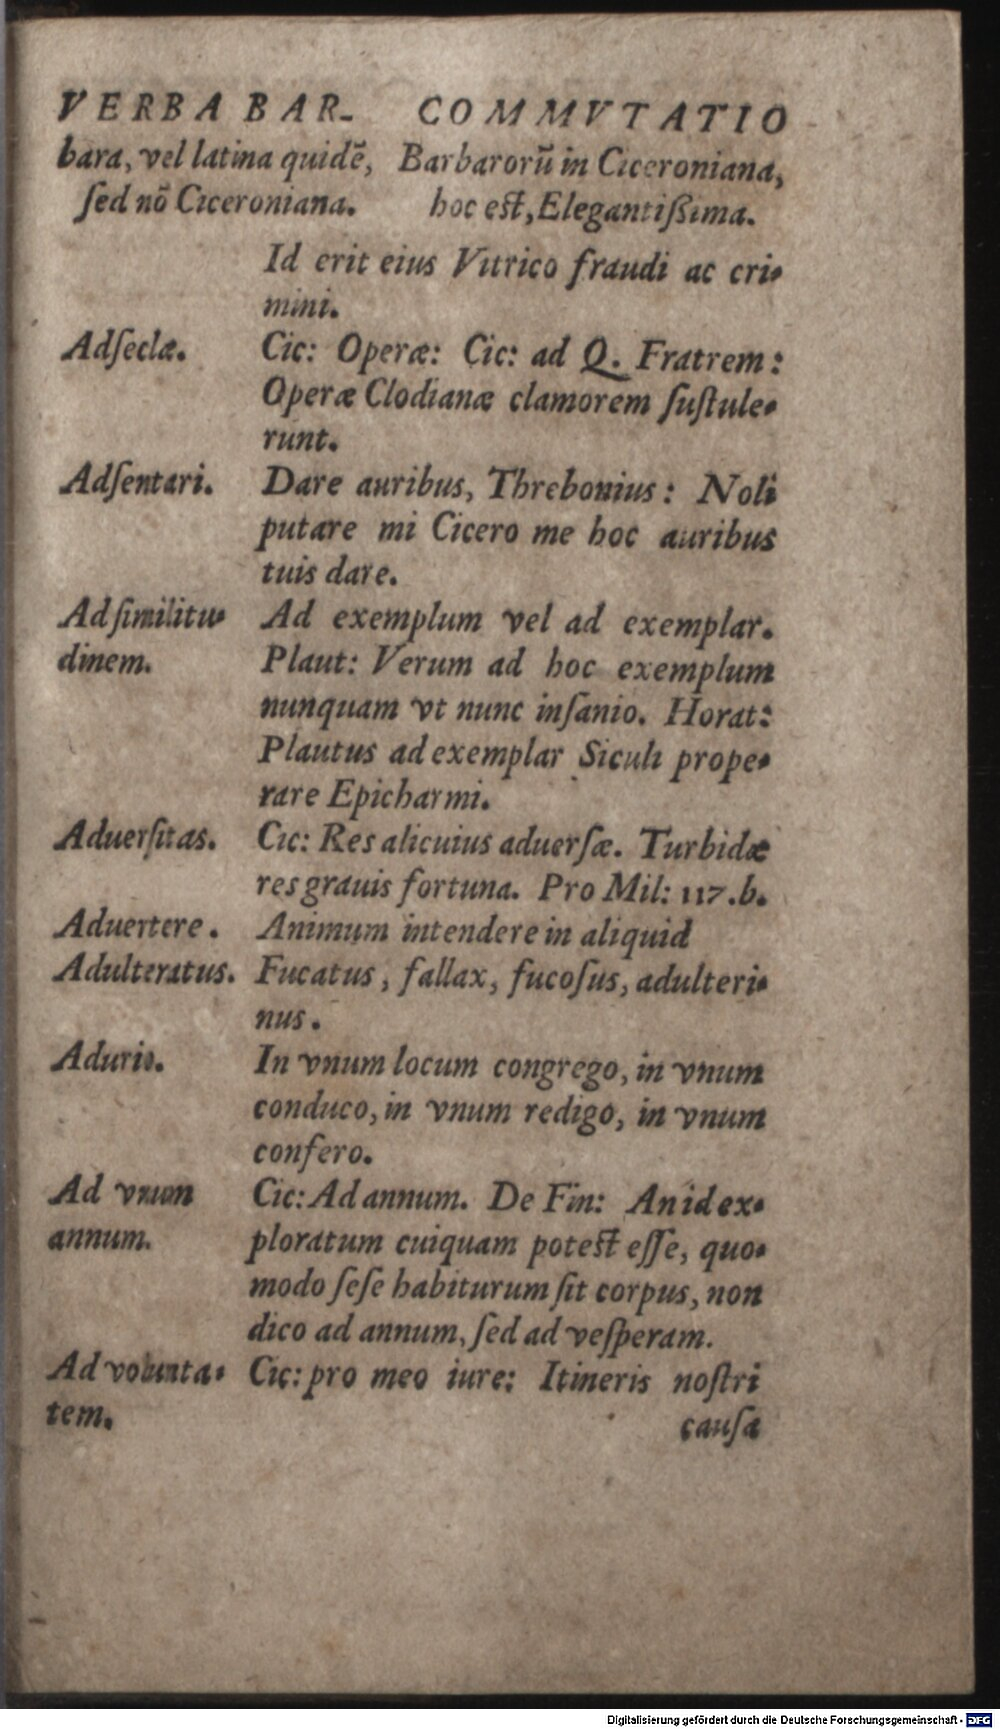 VERBA BAR- COMMVTATIO
bara, vel latina quidē, Barbarorū in Ciceroniana,
ſed nō Ciceroniana. hoc est, Elegantißima.
Id erit eius Vitrico fraudi ac cri-
mini.
Adſeclæ. Cic: Operæ: Cic: ad Q. Fratrem:
Operæ Clodianæ clamorem ſuſtule-
runt.
Adſentari. Dare auribus, Threbonius: Noli
putare mi Cicero me hoc auribus
tuis dare.
Ad ſimilitu- Ad exemplum vel ad exemplar.
dinem. Plaut: Verum ad hoc exemplum
nunquam vt nunc inſanio. Horat:
Plautus ad exemplar Siculi prope-
rare Epicharmi.
Aduerſitas. Cic: Res alicuius aduerſæ. Turbidæ
res grauis fortuna. Pro Mil: 117.b.
Aduertere. Animum intendere in aliquid
Adulteratus. Fucatus, fallax, fucoſus, adulteri-
nus.
In vnum locum congrego, in vnum
conduco, in vnum redigo, in vnum
confero.
Ad vnum Cic: Ad annum. De Fin: An id ex-
annum. ploratum cuiquam potest eſſe, quo-
modo ſeſe habiturum ſit corpus, non
dico ad annum, ſed ad veſperam.
Ad volunta- Cic: pro meo iure: Itineris noſtri
tem. cauſa
Digitalisierung gefördert durch die Deutsche Forschungsgemeinschaft - DFG